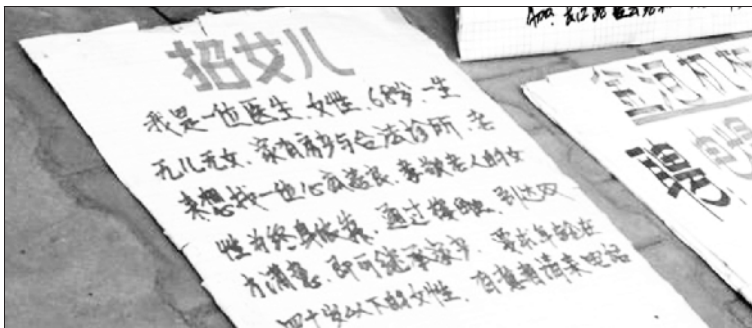 招女儿
我是一位医生，女性，68岁，一生
无儿无女，家有房产与合法诊所，老
来想找一位心底慈良，孝敬老人的女
性为终身依靠，通过接触，到达双
方满意，即可继承家产，要求年龄在
四十岁以下的女性，有意者请来电话